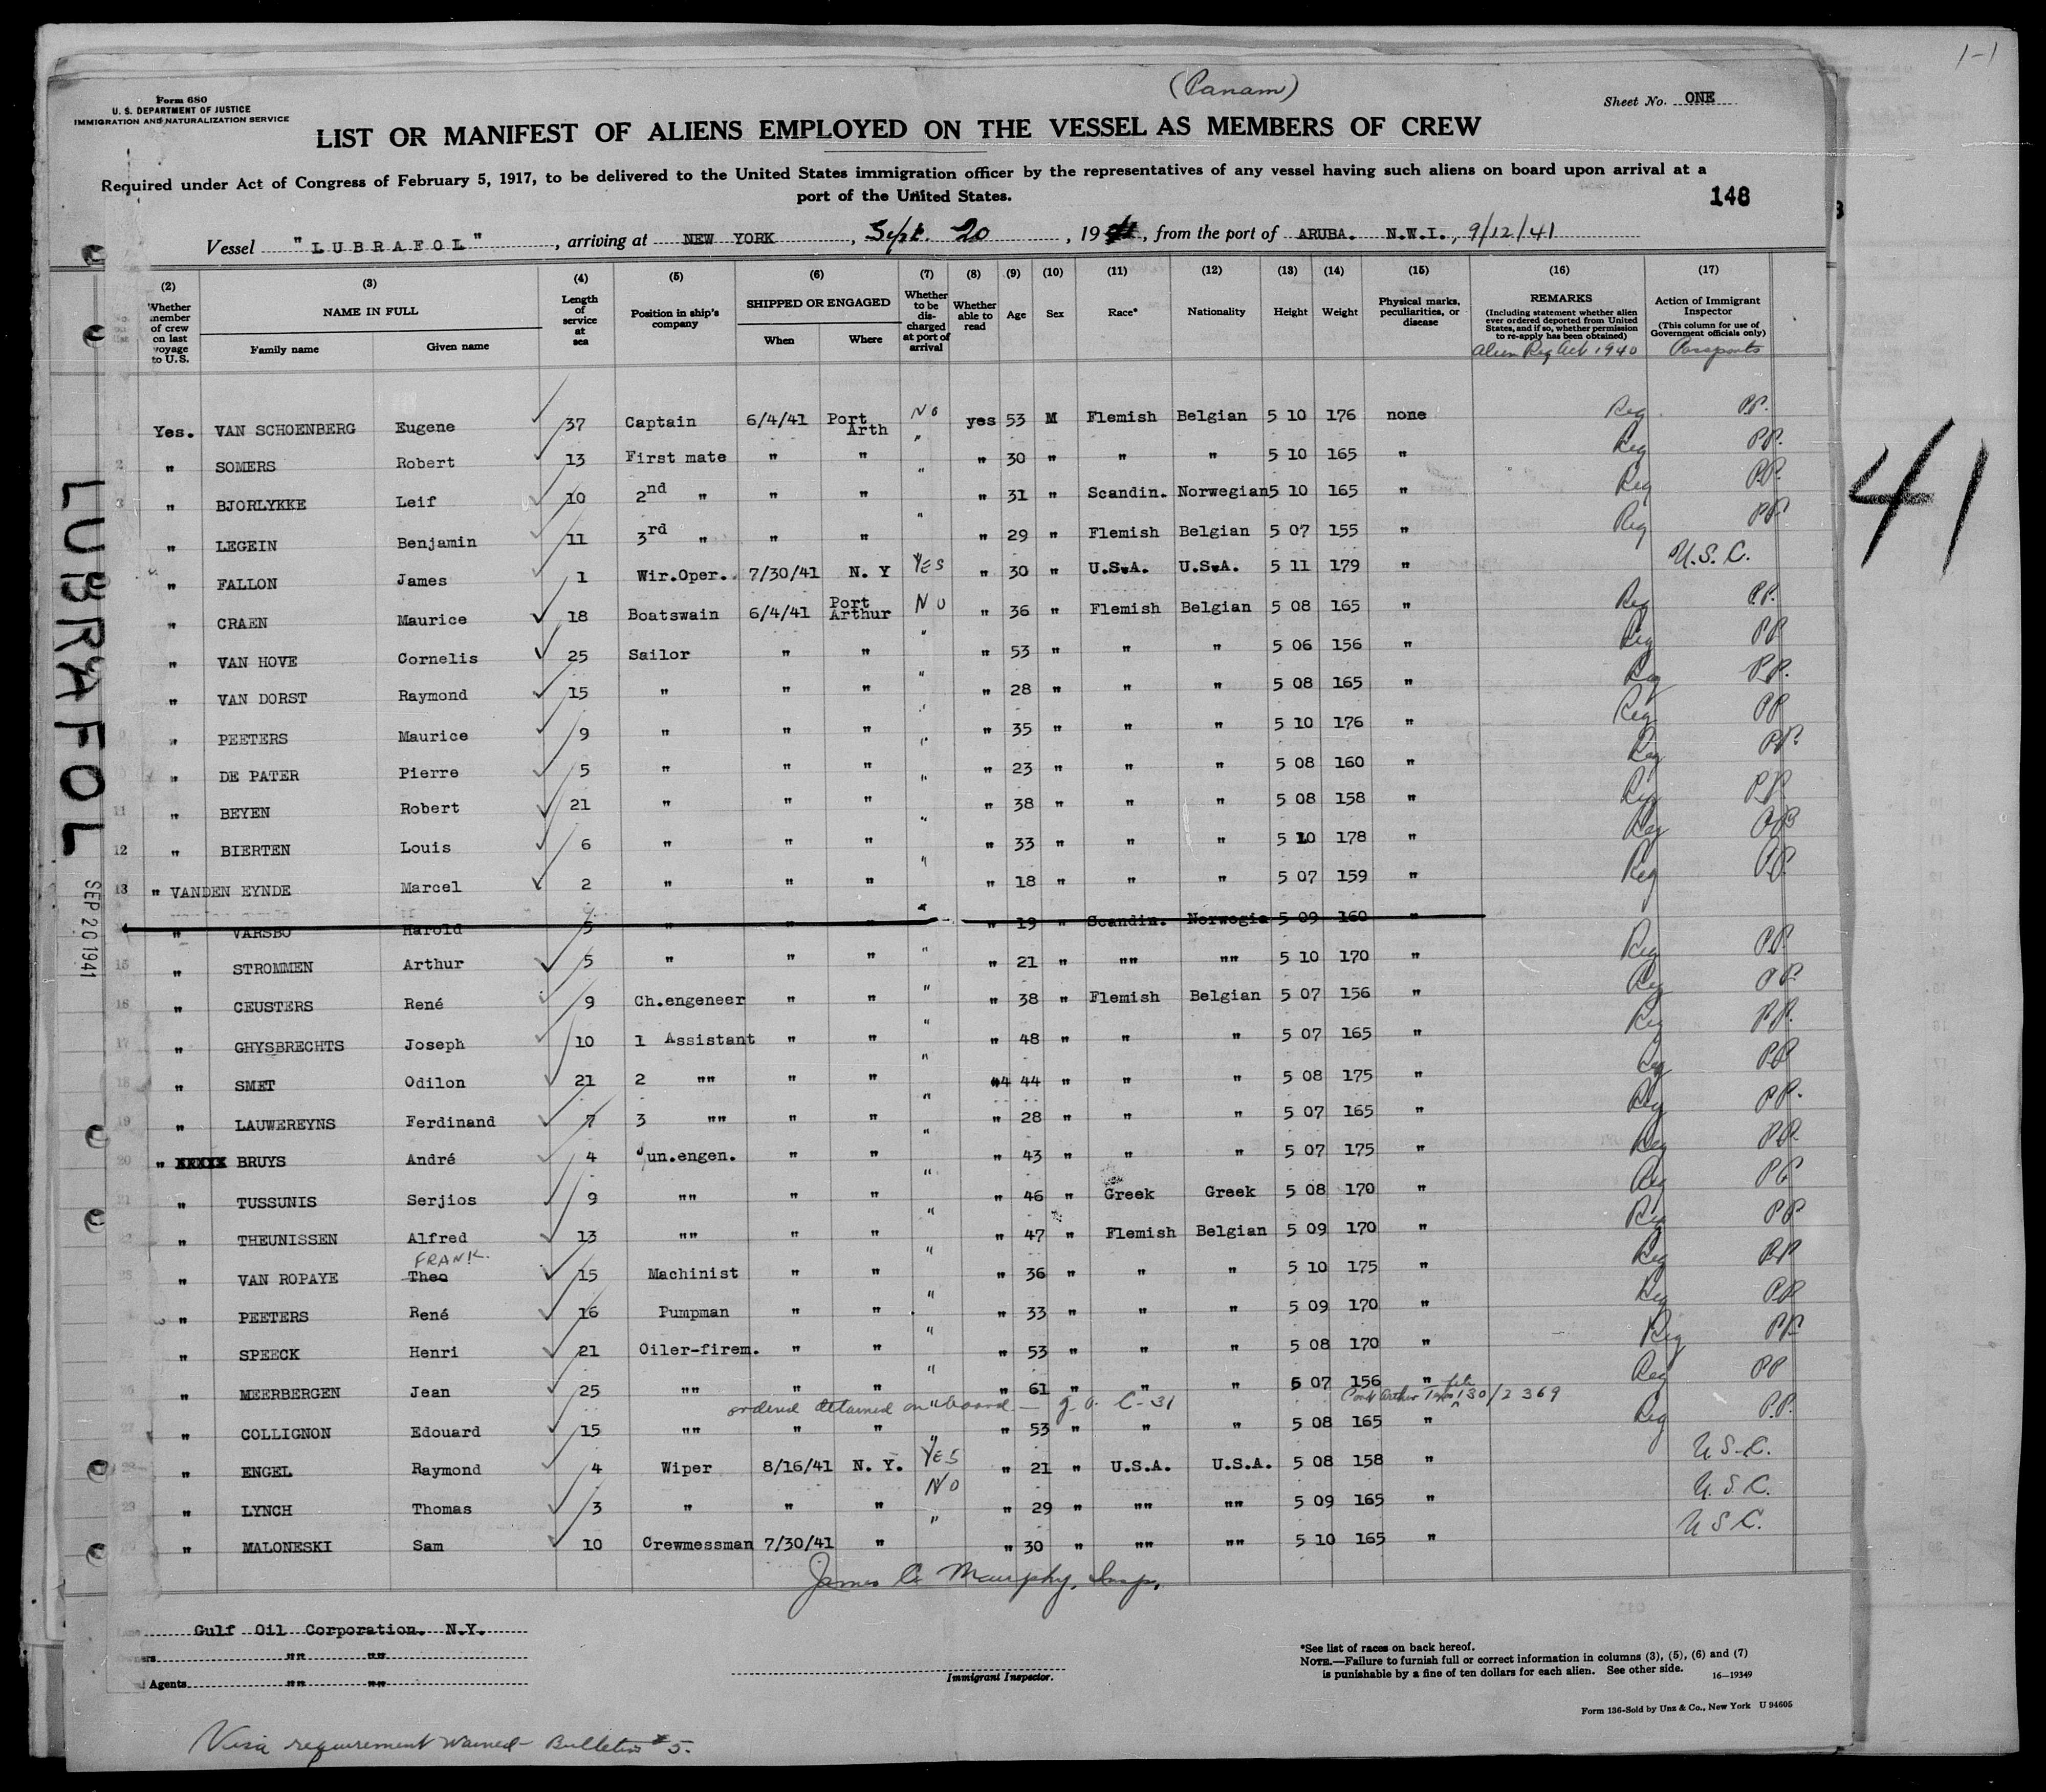 1-1
(Panam)
Form 680
U. S. DEPARTMENT OF JUSTICE
IMMIGRATION AND NATURALIZATION SERVICE
Sheet No. ONE
LIST OR MANIFEST OF ALIENS EMPLOYED ON THE VESSEL AS MEMBERS OF CREW
Required under Act of Congress of February 5, 1917, to be delivered to the United States immigration officer by the representatives of any vessel having such aliens on board upon arrival at a
port of the United States.
148
Vessel "LUBRAFOL", arriving at NEW YORK, Sept. 20, 1941, from the port of ARUBA. N.W.I., 9/12/41
(2) (3) (4) (5) (6) (7) (8) (9) (10) (11) (12) (13) (14) (15) (16) (17)
Whether member of crew on last voyage to U.S. NAME IN FULL Family name Given name Length of service at sea Position in ship's company SHIPPED OR ENGAGED When Where Whether to be discharged at port of arrival Whether able to read Age Sex Race* Nationality Height Weight Physical marks, peculiarities, or disease REMARKS (Including statement whether alien ever ordered deported from United States, and if so, whether permission to re-apply has been obtained) Action of Immigrant Inspector (This column for use of Government officials only)
Alien Reg Act 1940 Passports
Yes. VAN SCHOENBERG Eugene 37 Captain 6/4/41 Port Arth No yes 53 M Flemish Belgian 5 10 176 none Reg PP.
2 " SOMERS Robert 13 First mate " " " " 30 " " " 5 10 165 " Reg PP.
3 " BJORLYKKE Leif 10 2nd " " " " " 31 " Scandin. Norwegian 5 10 165 " Reg PP.
" LEGEIN Benjamin 11 3rd " " " " " 29 " Flemish Belgian 5 07 155 " Reg PP
" FALLON James 1 Wir.Oper. 7/30/41 N. Y YES " 30 " U.S.A. U.S.A. 5 11 179 " U.S.C.
" CRAEN Maurice 18 Boatswain 6/4/41 Port Arthur NO " 36 " Flemish Belgian 5 08 165 " Reg P.P.
" VAN HOVE Cornelis 25 Sailor " " " " 53 " " " 5 06 156 " Reg PP
" VAN DORST Raymond 15 " " " " " 28 " " " 5 08 165 " Reg P.P.
" PEETERS Maurice 9 " " " " " 35 " " " 5 10 176 " Reg PP
" DE PATER Pierre 5 " " " " " 23 " " " 5 08 160 " Reg PP.
11 " BEYEN Robert 21 " " " " " 38 " " " 5 08 158 " Reg P.P.
12 " BIERTEN Louis 6 " " " " " 33 " " " 5 10 178 " Reg
13 " VANDEN EYNDE Marcel 2 " " " " " 18 " " " 5 07 159 " Reg P.P.
" VARSBO Harold 5 " " " " " 19 " Scandin. Norwegia 5 09 160 "
15 " STROMMEN Arthur 5 " " " " " 21 " "" "" 5 10 170 " Reg P.P.
16 " CEUSTERS René 9 Ch.engeneer " " " " 38 " Flemish Belgian 5 07 156 " Reg PP.
17 " GHYSBRECHTS Joseph 10 1 Assistant " " " " 48 " " " 5 07 165 " Reg P.P.
18 " SMET Odilon 21 2 "" " " " 44 44 " " " 5 08 175 " Reg PP
19 " LAUWEREYNS Ferdinand 7 3 "" " " " " 28 " " " 5 07 165 " Reg PP.
20 " XXXXX BRUYS André 4 Jun.engen. " " " " 43 " " " 5 07 175 " Reg P.P.
21 " TUSSUNIS Serjios 9 "" " " " " 46 " Greek Greek 5 08 170 " Reg PP
" THEUNISSEN Alfred 13 "" " " " " 47 " Flemish Belgian 5 09 170 " Reg PP
FRANK.
" VAN ROPAYE Theo 15 Machinist " " " " 36 " " " 5 10 175 " Reg PP
" PEETERS René 16 Pumpman " " " " 33 " " " 5 09 170 " Reg PP
" SPEECK Henri 21 Oiler-firem. " " " " 53 " " " 5 08 170 " Reg PP
26 " MEERBERGEN Jean 25 "" " " " " 61 " " " 5 07 156 " Reg PP
ordered detained on board - g.o. C-31 130/2369
27 " COLLIGNON Edouard 15 "" " " " " 53 " " " 5 08 165 " Reg P.P.
28 " ENGEL Raymond 4 Wiper 8/16/41 N. Y. YES " 21 " U.S.A. U.S.A. 5 08 158 " U.S.C.
29 " LYNCH Thomas 3 " " " NO " 29 " "" "" 5 09 165 " U.S.C.
" MALONESKI Sam 10 Crewmessman 7/30/41 " " " 30 " "" "" 5 10 165 " U S C.
James Murphy, Insp.
Gulf Oil Corporation. N.Y.
Owners "" ""
Agents "" ""
Immigrant Inspector.
*See list of races on back hereof.
NOTE.—Failure to furnish full or correct information in columns (3), (5), (6) and (7)
is punishable by a fine of ten dollars for each alien. See other side. 16-19349
Form 136-Sold by Unz & Co., New York U 94605
Visa requirement waived - Bulletin #5.
LUBRAFOL
SEP 20 1941
41